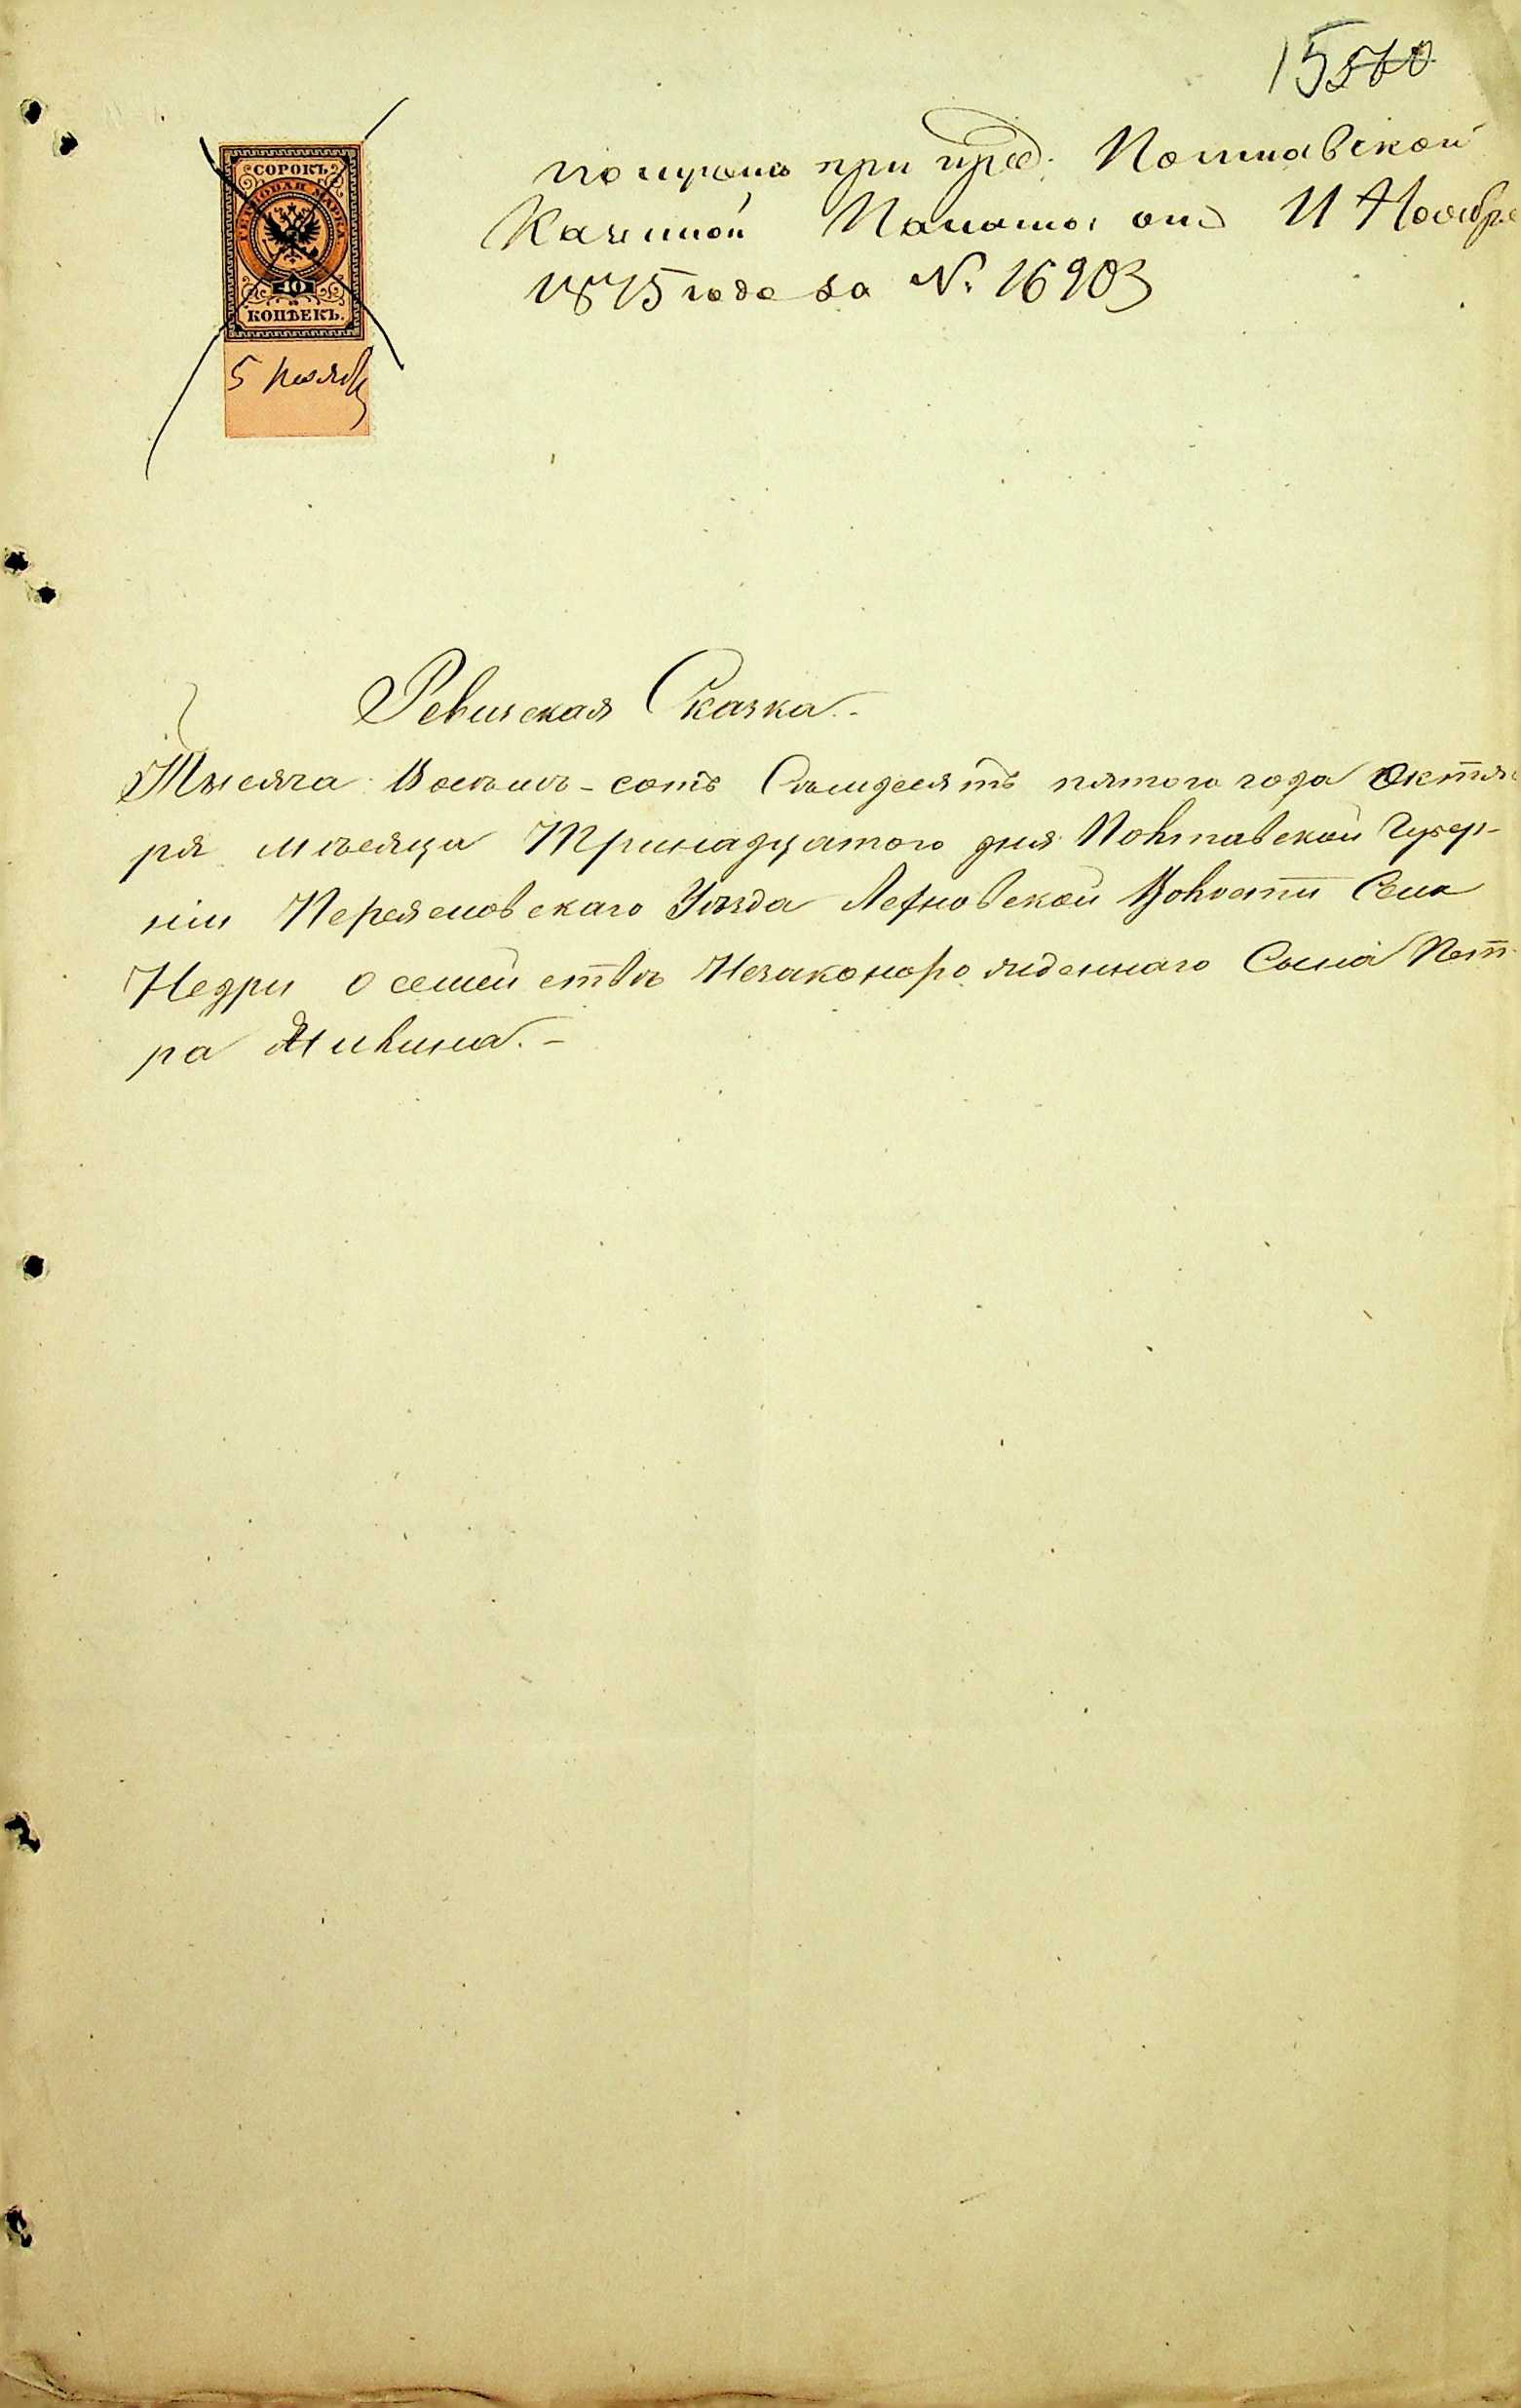 15 560
СОРОКЪ
ГЕРБОВАЯ МАРКА
40
КОПѢЕКЪ.
5 Ноября
получена при пред. Полтавской
Казенной Палаты отъ 11 Ноября
1875 года за N. 16903
Ревизская Сказка.-
Тысяча Восемь-сотъ Семдесятъ пятого года Октяб
ря мѣсяца Тринадцатого дня Полтавской Губер-
ніи Переяславскаго Уѣзда Волости Села
Недри о семействѣ Незаконорожденнаго Сына Пет-
ра